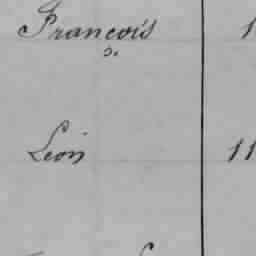 François 1
Léon 11